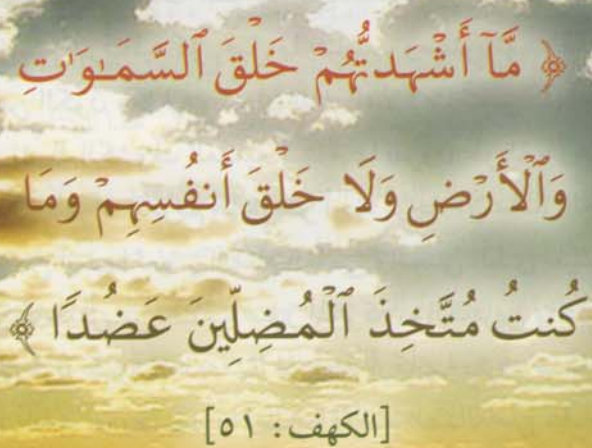 ﴿ مَّآ أَشْهَدتُّهُمْ خَلْقَ ٱلسَّمَٰوَٰتِ
وَٱلْأَرْضِ وَلَا خَلْقَ أَنفُسِهِمْ وَمَا
كُنتُ مُتَّخِذَ ٱلْمُضِلِّينَ عَضُدًا ﴾
[الكهف: ٥١]